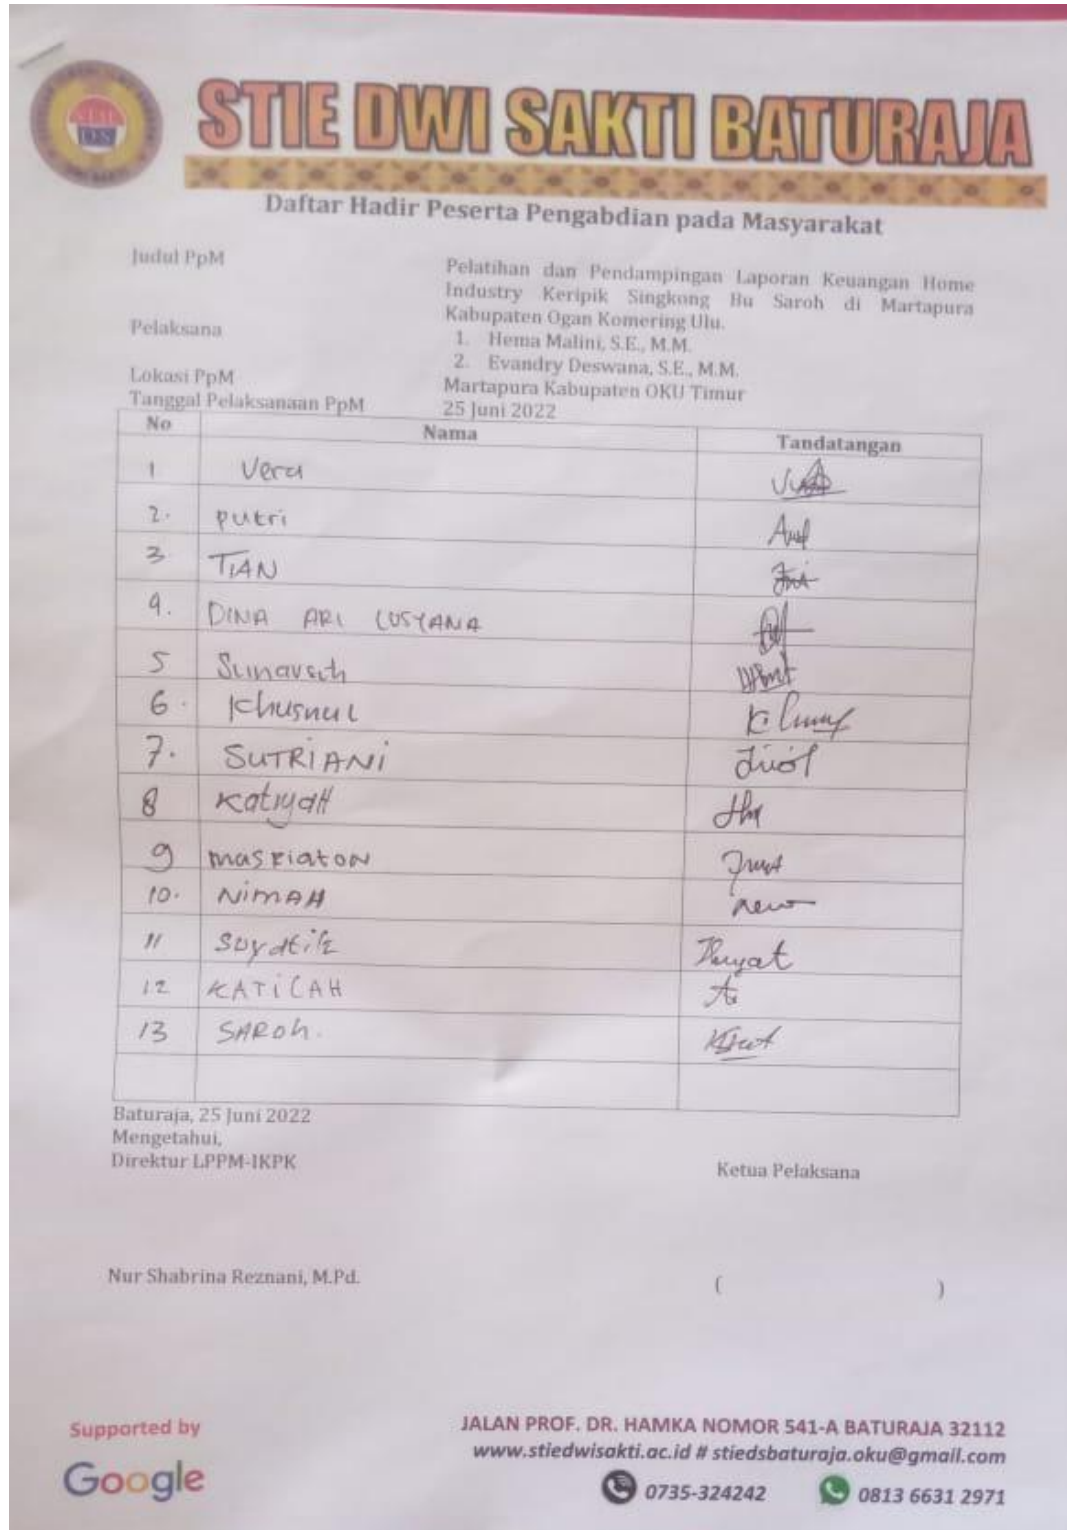 STIE DWI SAKTI BATURAJA
Daftar Hadir Peserta Pengabdian pada Masyarakat
Judul PpM
Pelatihan dan Pendampingan Laporan Keuangan Home
Industry Keripik Singkong Bu Saroh di Martapura
Kabupaten Ogan Komering Ulu.
Pelaksana
1. Hema Malini, S.E., M.M.
2. Evandry Deswana, S.E., M.M.
Lokasi PpM Martapura Kabupaten OKU Timur
Tanggal Pelaksanaan PpM 25 Juni 2022
No Nama Tandatangan
1 Vera
2. putri
3 TIAN
4. DINA ARI LUSYANA
5
6. Khusnul
7. SUTRIANI
8 Katiyah
9 masriaton
10. NimAH
11
12 KATiLAH
13 SAROh.
Baturaja, 25 Juni 2022
Mengetahui,
Direktur LPPM-IKPK
Ketua Pelaksana
Nur Shabrina Reznani, M.Pd. ( )
Supported by
Google
JALAN PROF. DR. HAMKA NOMOR 541-A BATURAJA 32112
www.stiedwisakti.ac.id # stiedsbaturaja.oku@gmail.com
0735-324242 0813 6631 2971